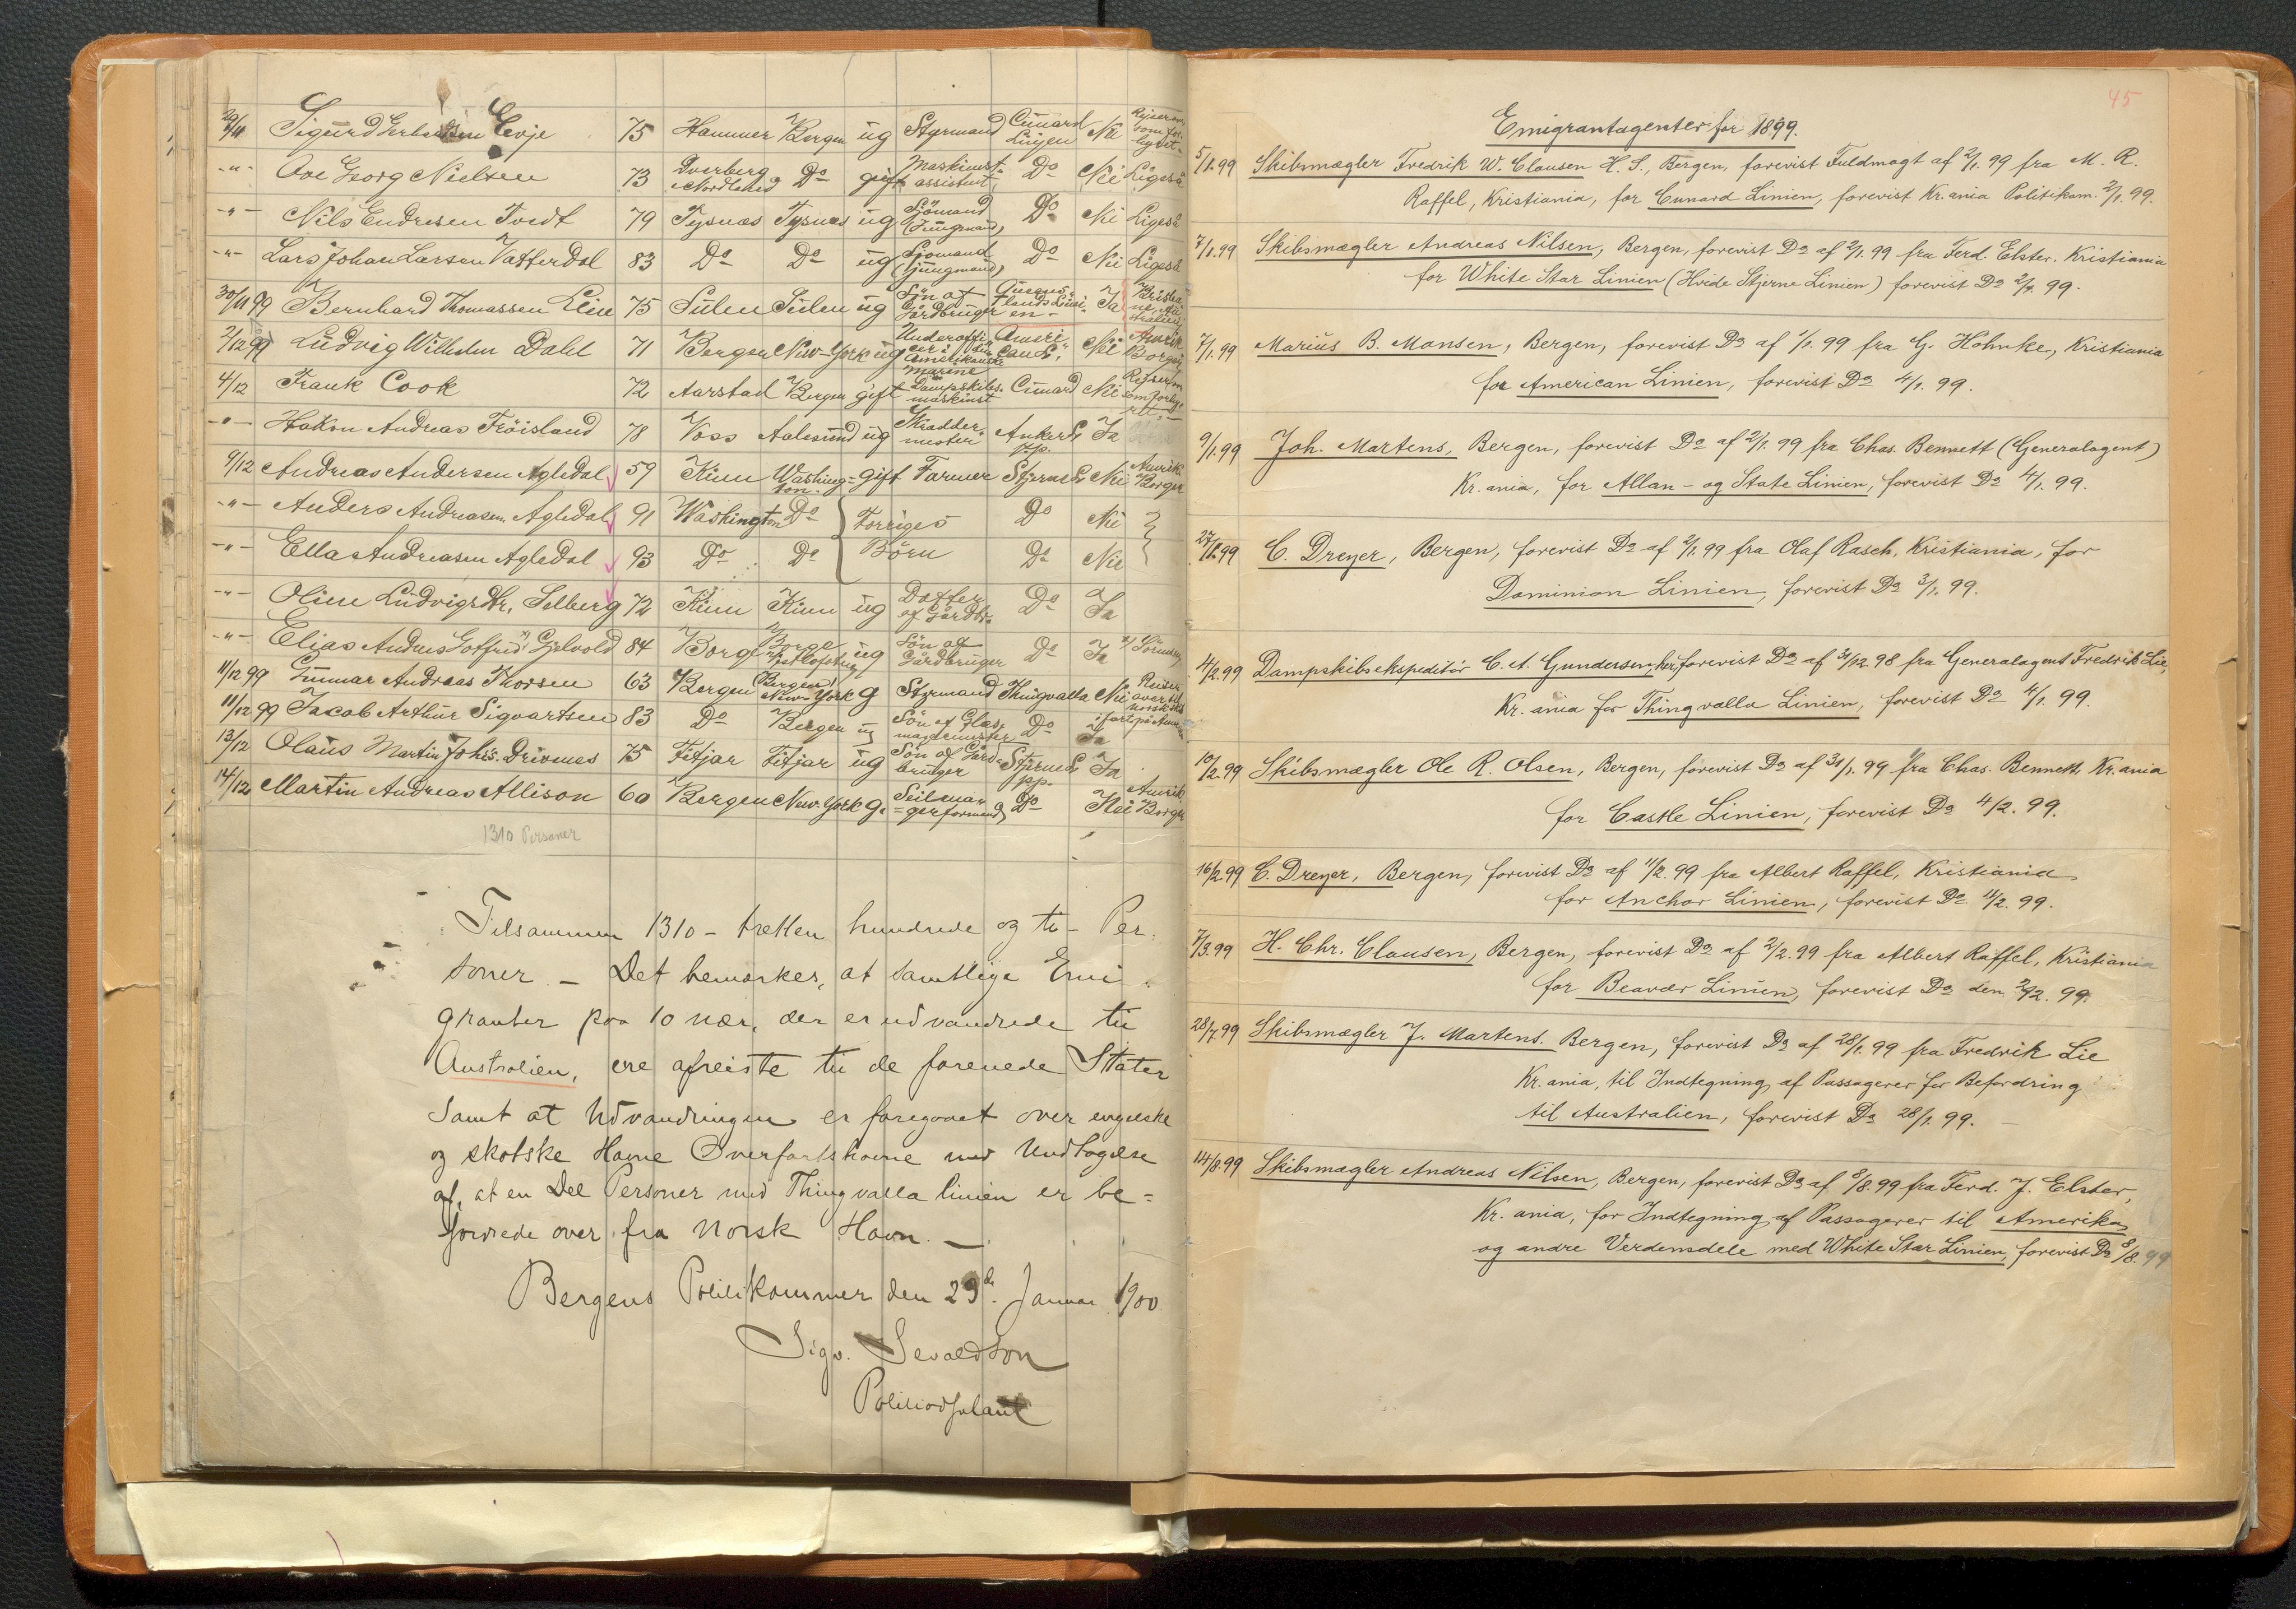 29/11 Sigurd Gerhardsen Evje 75 Hammer Bergen ug Styrmand Cunard Linjen Nei Rejser som for- lydt.
-"- Ove Georg Nielsen 73 Dverberg Nordland Do gift Maskinist- assistent Do Nei Ligeså
-"- Nils Endresen Tvedt 79 Tysnæs Tysnæs ug Sjömand (Jungmand) Do Nei Ligeså
-"- Lars Johan Larsen Vatterdal 83 Do Do ug Sjömand (Jungmand) Do Nei Ligeså
30/11 99 Bernhard Thomassen Lein 75 Sulen Sulen ug Sön af Gårdbruger Queens- lands Lini- en - Ja
2/12 99 Ludvig Wilhelm Dahl 71 Bergen New-York ug Underoffi- cer i den Amerikanske marine Ameri- can L. Nei Amrik Borger
4/12 Frank Cook 72 Aarstad Bergen gift Dampskibs- maskinist Cunard Nei
-"- Hakon Andreas Fröisland 78 Voss Aalesund ug Skrædder- mester Anker L. pp. Ja
9/12 Andreas Andersen Agledal 59 Kinn Washing- ton. gift Farmer Stjerne L. Nei Amrik Borger
-"- Anders Andreasen Agledal 91 Washington Do Forriges Do Nei
-"- Ella Andreasen Agledal 93 Do Do Börn Do Nei
-"- Oline Ludvigs Dtr. Selberg 72 Kinn Kinn ug Datter af Gårdbr. Do Ja
-"- Elias Andreas Gotfred Gjelvold 84 Borge Borge Vestlofoten ug Sön af Gårdbruger Do Ja
11/12 99 Gunnar Andreas Thorsen 63 Bergen (Bergen) New-York g Styrmand Thingvalla Nei
11/12 99 Jacob Arthur Sigvartsen 83 Do Bergen ug Sön af Glas- magermester Do Ja
13/12 Olaus Martin Johs. Drivenes 75 Fitjar Fitjar ug Sön af Gård- bruger Stjerne L. pp. Ja
14/12 Martin Andreas Allison 60 Bergen New-York g. Seilma- gerformand Do Nei Amrik Borger
1310 Personer
Tilsammen 1310 - tretten hundrede og ti - Per-
soner. - Det bemærkes, at samtlige Emi-
granter paa 10 nær, der er udvandrede til
Australien, ere afreiste til de forenede Stater
samt at Udvandringen er foregaaet over engelske
og skotske Havne Overfartshavne med Undtagelse
af, at en Del Personer med Thingvalla linien er be-
fordrede over fra norsk Havn. -
Bergens Politikammer den 29de Januar 1900
Sigv. Sevaldson
Politiadjutant
45
Emigrantagenter for 1899.
5/1.99 Skibsmægler Fredrik W. Clausen H. S., Bergen, forevist Fuldmagt af 2/1.99 fra M. R.
Raffel, Kristiania, for Cunard Linien, forevist Kr.ania Politikam. 2/1.99.
7/1.99 Skibsmægler Andreas Nilsen, Bergen, forevist Do af 2/1.99 fra Ferd. Elster, Kristiania
for White Star Linien (Hvide Stjerne Linien) forevist Do 2/1.99.
7/1.99 Marius B. Monsen, Bergen, forevist Do af 1/1.99 fra G. Hohnke, Kristiania
for American Linien, forevist Do 4/1.99.
9/1.99 Joh. Martens, Bergen, forevist Do af 2/1.99 fra Chas. Bennett (Generalagent)
Kr.ania, for Allan- og State Linien, forevist Do 4/1.99.
27/1.99 C. Dreyer, Bergen, forevist Do af 2/1.99 fra Olaf Rasch, Kristiania, for
Dominion Linien, forevist Do 3/1.99.
4/2.99 Dampskibsekspeditör C. A. Gundersen, her, forevist Do af 31/12.98 fra Generalagent Fredrik Lie,
Kr.ania for Thingvalla Linien, forevist Do 4/1.99.
10/2.99 Skibsmægler Ole R. Olsen, Bergen, forevist Do af 31/1.99 fra Chas. Bennett, Kr.ania
for Castle Linien, forevist Do 4/2.99.
16/2.99 C. Dreyer, Bergen, forevist Do af 11/2.99 fra Albert Raffel, Kristiania
for Anchor Linien, forevist Do 11/2.99.
7/3.99 H. Chr. Clausen, Bergen, forevist Do af 2/2.99 fra Albert Raffel, Kristiania
for Beaver Linien, forevist Do den 2/2.99.
28/7.99 Skibsmægler J. Martens. Bergen, forevist Do af 28/1.99 fra Fredrik Lie
Kr.ania, til Indtegning af Passagerer for Befordring
til Australien, forevist Do 28/1.99. -
14/8.99 Skibsmægler Andreas Nilsen, Bergen, forevist Do af 8/8.99 fra Ferd. J. Elster,
Kr.ania, for Indtegning af Passagerer til Amerika
og andre Verdensdele med White Star Linien, forevist Do 8/8.99